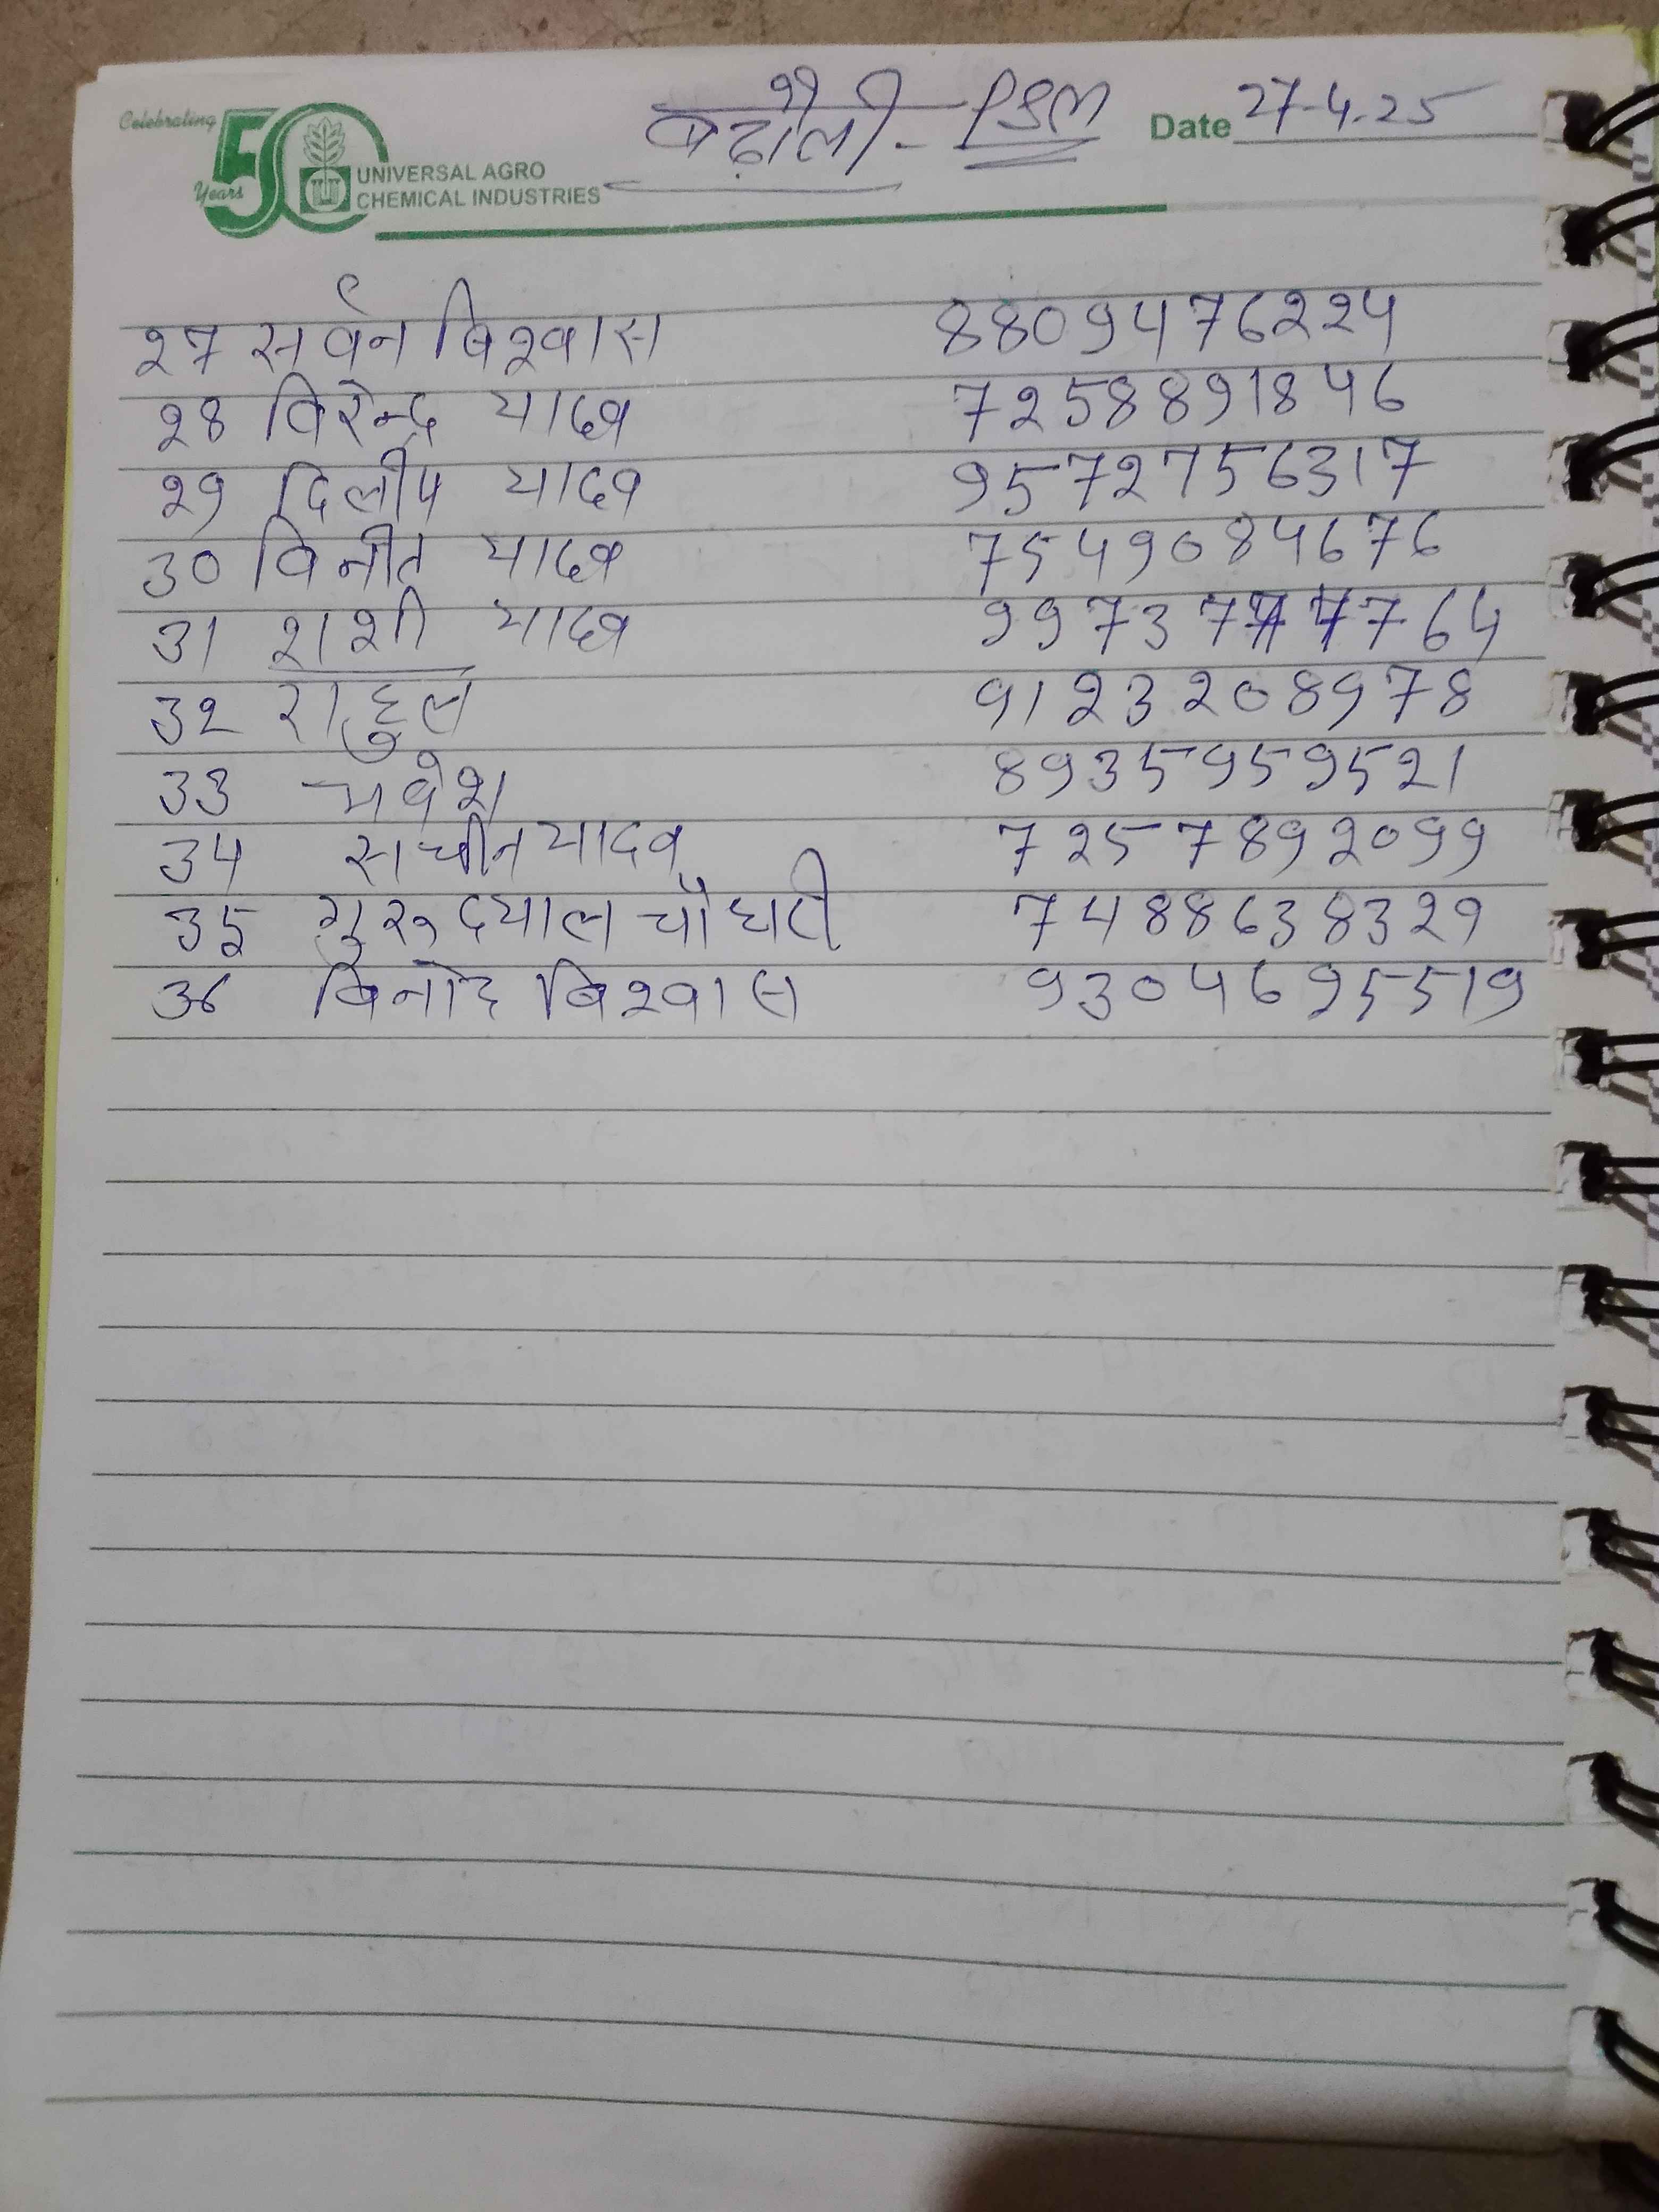 Celebrating
50 Years
UNIVERSAL AGRO
CHEMICAL INDUSTRIES
बढौली - PSM
Date 27-4-25
27 सर्वन बिश्वास 8809476224
28 विरेन्द्र यादव 7258891846
29 दिलीप यादव 9572756317
30 विनीत यादव 7549084676
31 शशी यादव 64
32 राहुल 9123208978
33 8935959521
34 सचीन यादव 7257892099
35 गुरुदयाल चौधरी 7488638329
36 बिनोद बिश्वास 9304695519